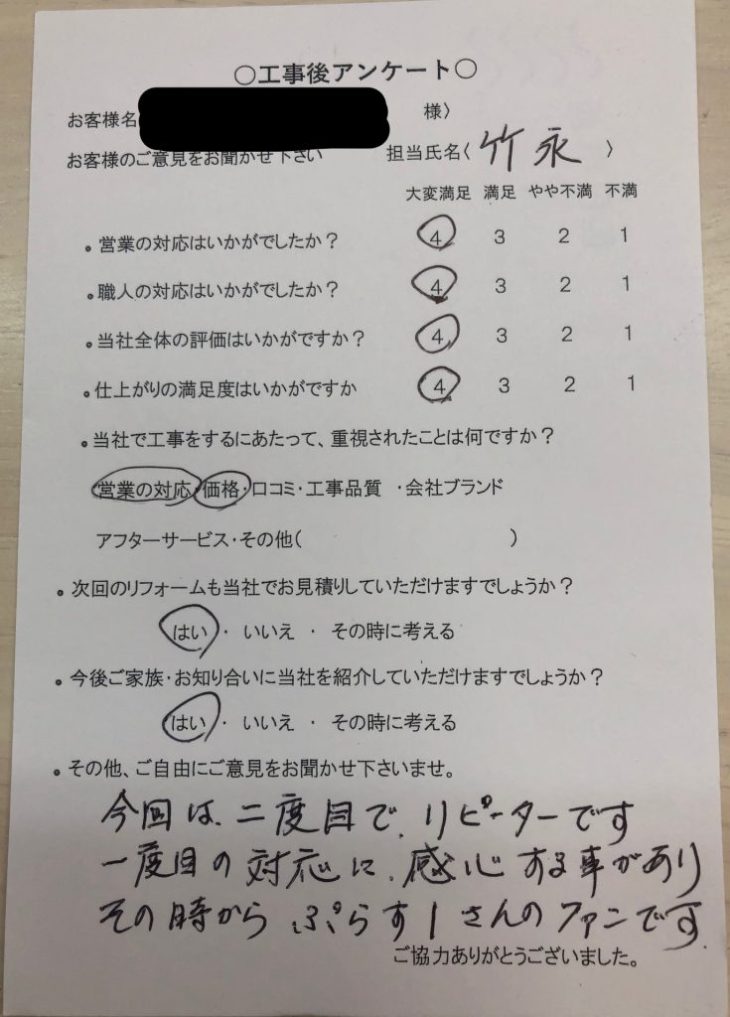 ○工事後アンケート○
お客様名 様〉
お客様のご意見をお聞かせ下さい 担当氏名〈 竹永 〉
大変満足 満足 やや不満 不満
。営業の対応はいかがでしたか？ 4 3 2 1
。職人の対応はいかがでしたか？ 4 3 2 1
。当社全体の評価はいかがですか？ 4 3 2 1
。仕上がりの満足度はいかがですか 4 3 2 1
。当社で工事をするにあたって、重視されたことは何ですか？
営業の対応・価格・口コミ・工事品質 ・会社ブランド
アフターサービス・その他( )
。次回のリフォームも当社でお見積りしていただけますでしょうか？
はい ・ いいえ ・ その時に考える
。今後ご家族・お知り合いに当社を紹介していただけますでしょうか？
はい ・ いいえ ・ その時に考える
。その他、ご自由にご意見をお聞かせ下さいませ。
今回は、二度目で、リピーターです
一度目の対応に、感心する事があり
その時から ぷらす1さんのファンです。
ご協力ありがとうございました。